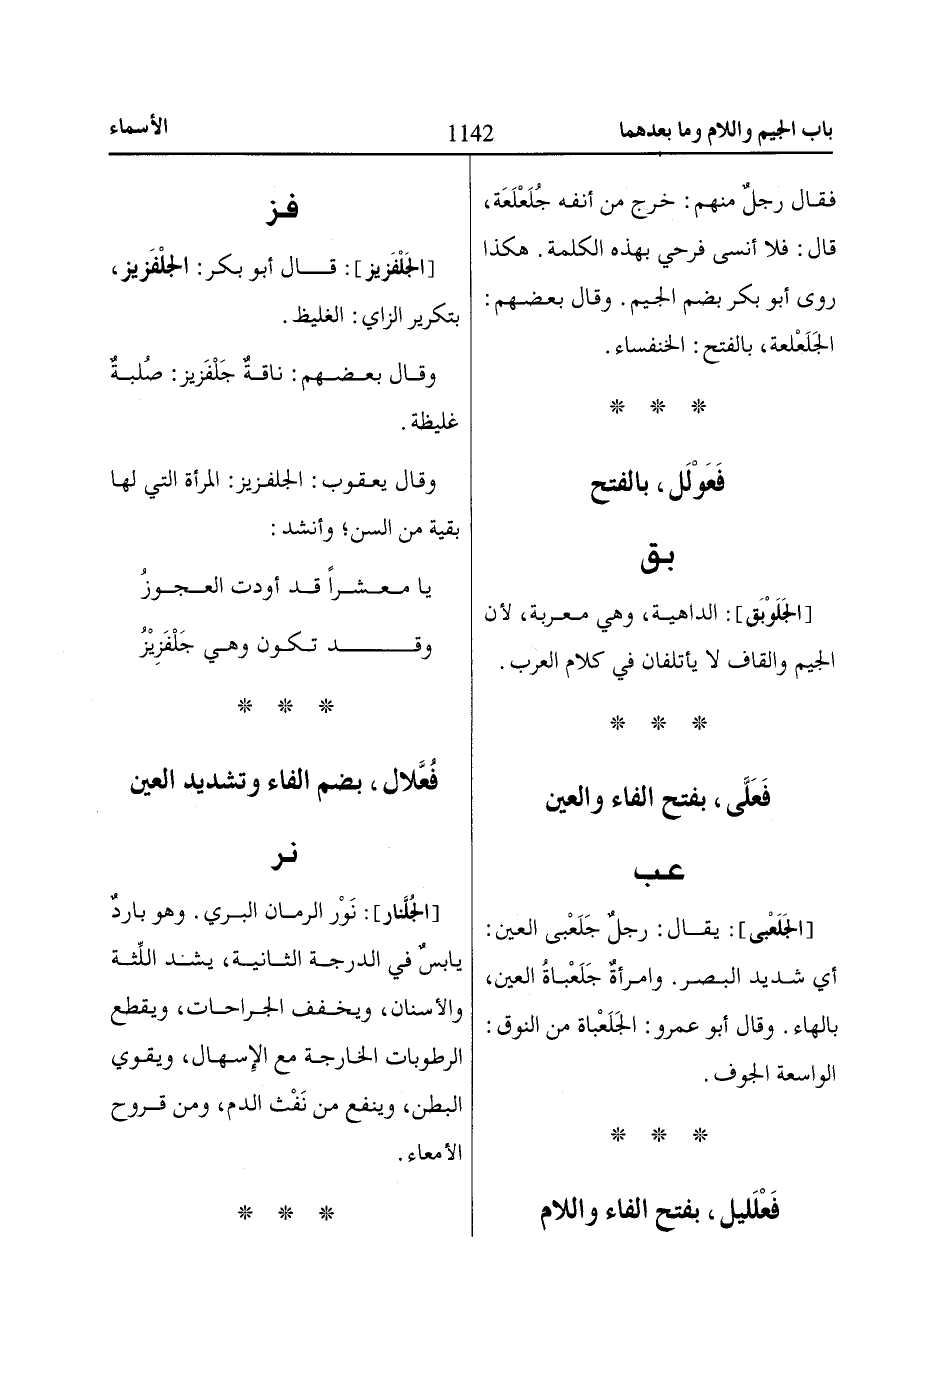 باب الجيم واللام وما بعدهما
1142
الأسماء
فقال رجلٌ منهم: خرج من أنفه جُلَعْلَعة،
قال: فلا أنسى فرحي بهذه الكلمة. هكذا
روى أبو بكر بضم الجيم. وقال بعضهم:
الجَلَعْلعة، بالفتح: الخنفساء.
* * *
فَعَوْلَل، بالفتح
بق
[الجَلَوْبَق]: الداهية، وهي معربة، لأن
الجيم والقاف لا يأتلفان في كلام العرب.
* * *
فَعَلَّى، بفتح الفاء والعين
عب
[الجَلَعْبى]: يقال: رجلٌ جَلَعْبى العين:
أي شديد البصر. وامرأةٌ جَلَعْباةُ العين،
بالهاء. وقال أبو عمرو: الجَلَعْباة من النوق:
الواسعة الجوف.
* * *
فَعْلَليل، بفتح الفاء واللام
فز
[الجَلْفَزيز]: قال أبو بكر: الجلْفَزيز،
بتكرير الزاي: الغليظ.
وقال بعضهم: ناقةٌ جَلْفَزيز: صُلبةٌ
غليظة.
وقال يعقوب: الجلفزيز: المرأة التي لها
بقية من السن؛ وأنشد:
يا معشراً قد أودت العجوزُ
وقد تكون وهي جَلْفَزِيْزُ
* * *
فُعَّلال، بضم الفاء وتشديد العين
نر
[الجُلَّنار]: نَوْر الرمان البري. وهو باردٌ
يابسٌ في الدرجة الثانية، يشند اللِّثة
والأسنان، ويخفف الجراحات، ويقطع
الرطوبات الخارجة مع الإسهال، ويقوي
البطن، وينفع من نَفْث الدم، ومن قروح
الأمعاء.
* * *